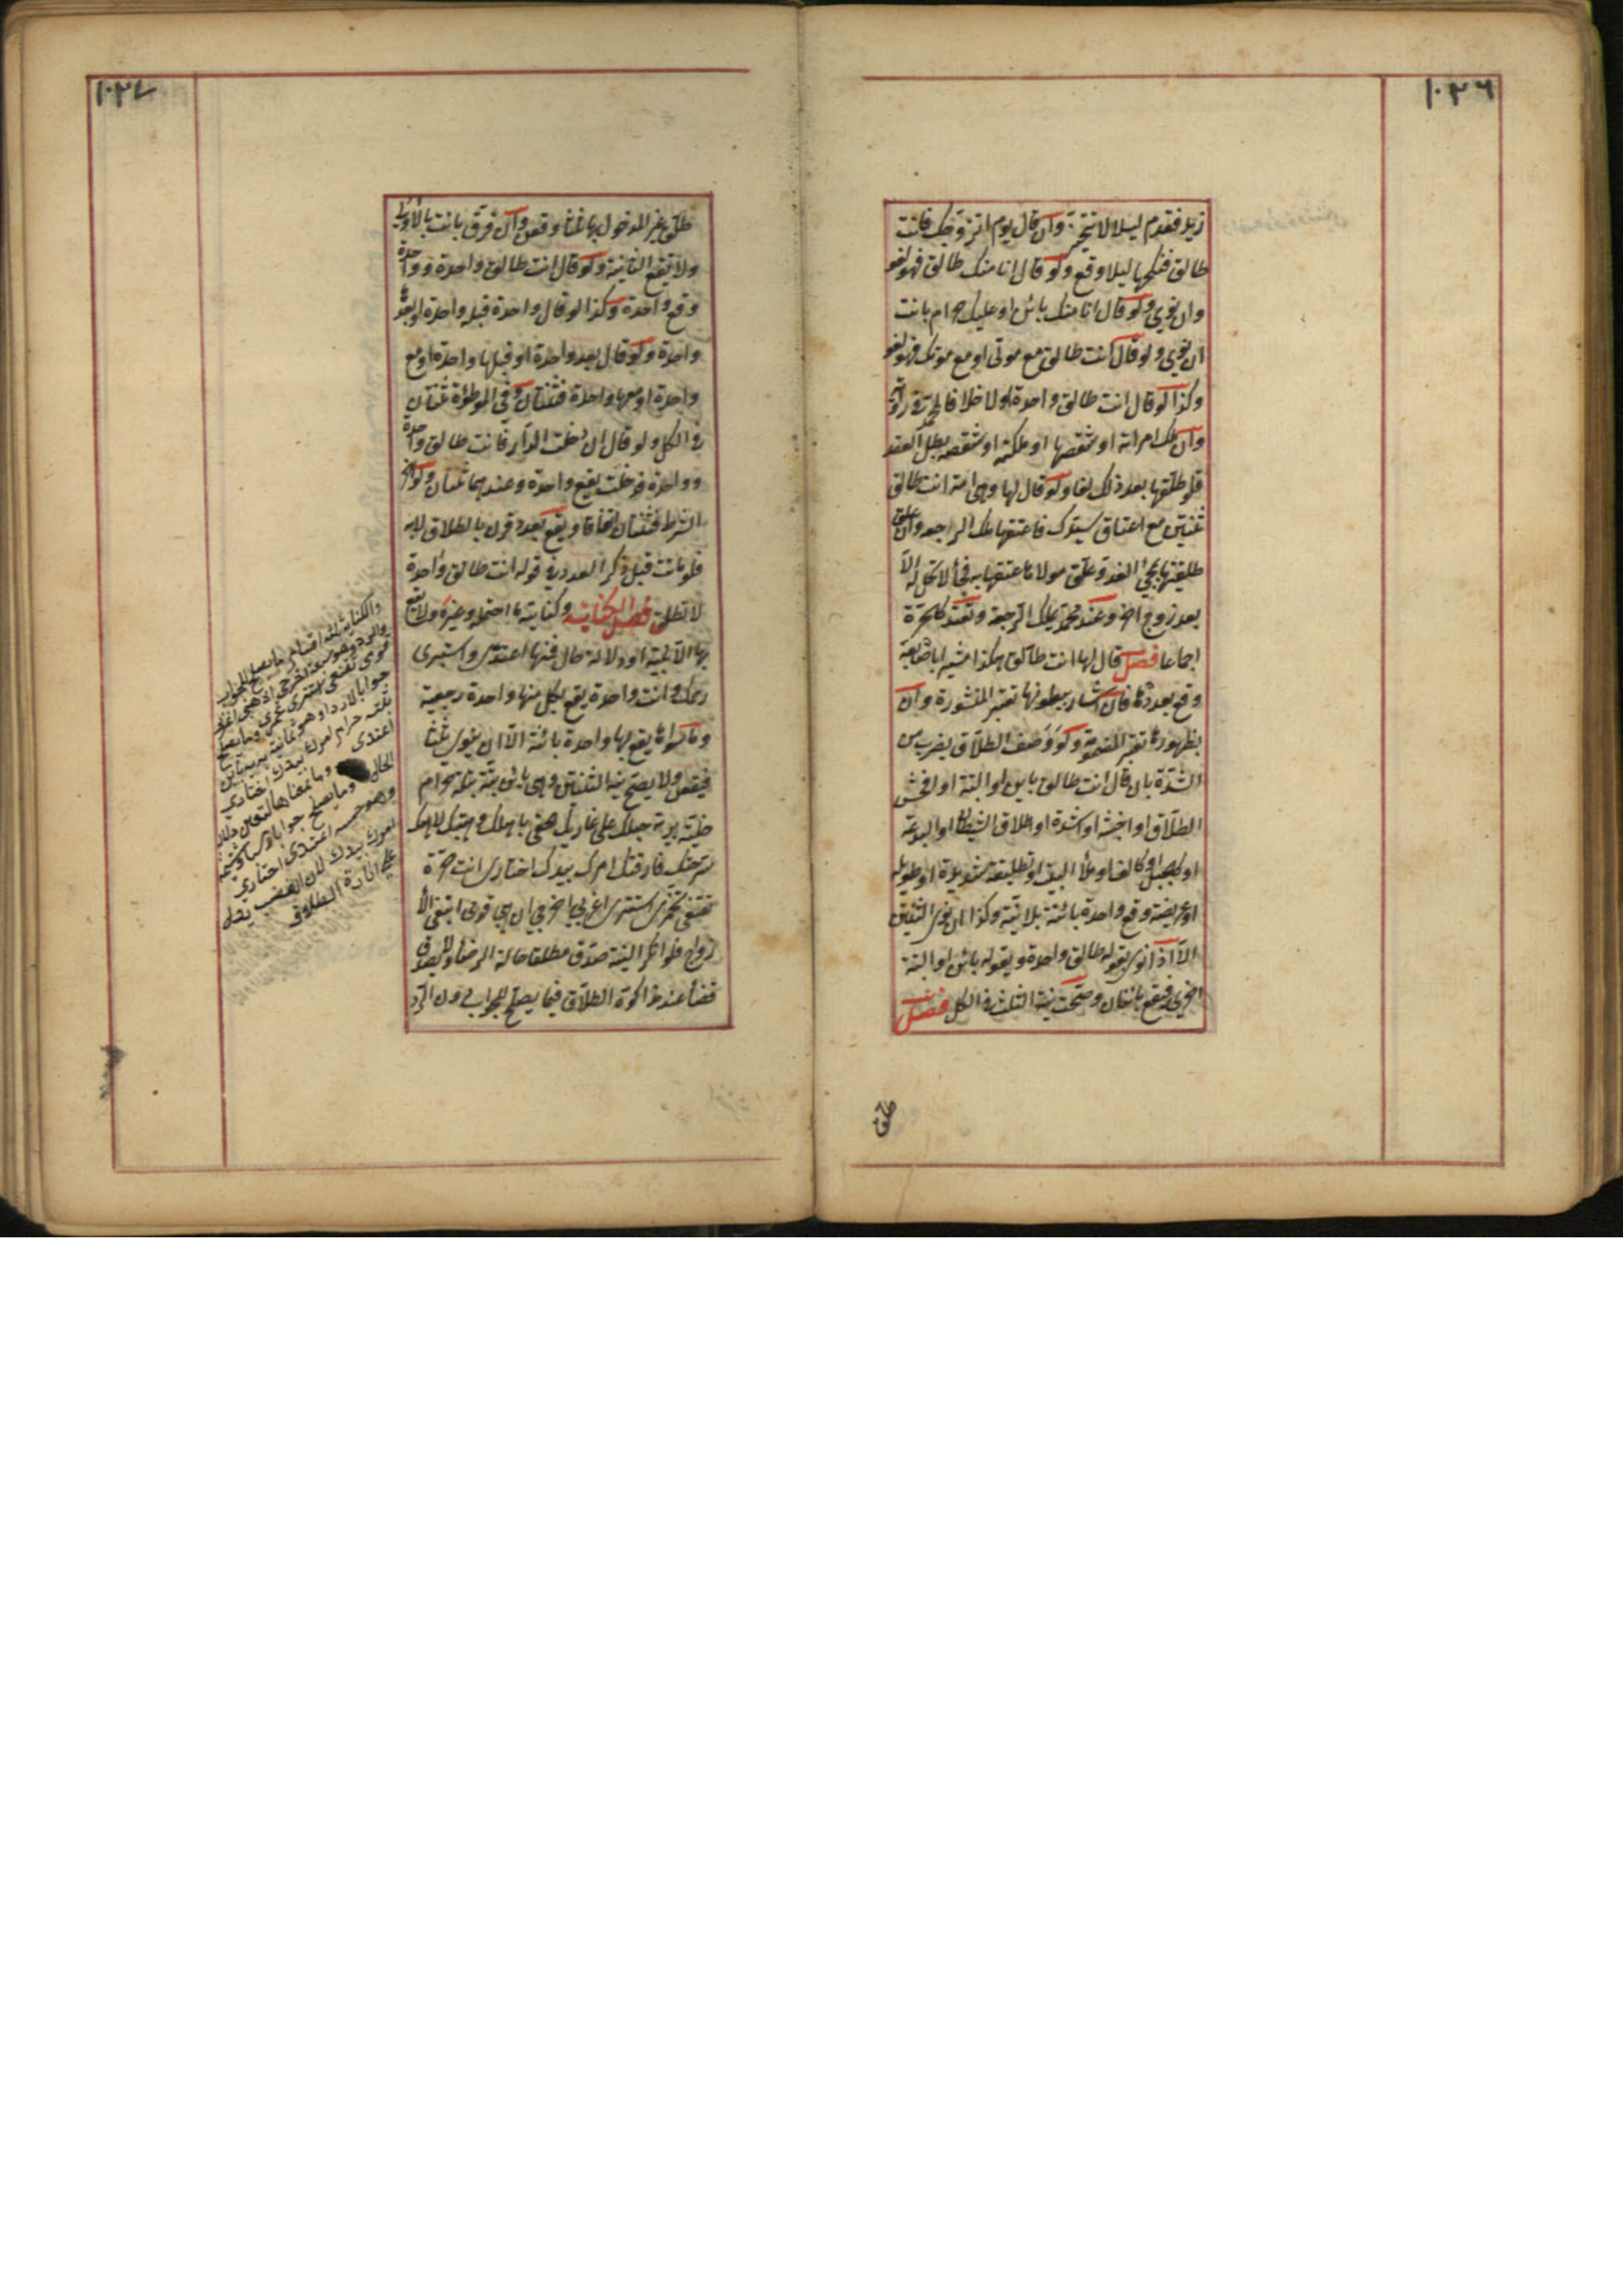 ١٠٢٦
زيد فقدم ليلا لا تنحيز وان قال يوم اتزوجك فانت
طالق فنكحها ليلا وقع ولو قال انا منك طالق فهو لغو
وان نوى ولو قال انا منك بائن او عليك حرام بانت
ان نوى ولو قال انت طالق مع موتى او مع موتك فهو لغو
وكذا لو قال انت طالق واحدة او لا خلافا لمحمد في رواية
وان ملك امراته او شقصها او ملكته او شقصه بطل العقد
فلو طلقها بعد ذلك لغا ولو قال لها وهي امة انت طالق
ثنتين مع اعتاق سيدك فاعتقها ملك الرجعة وان علق
طلقتيها بمجئ الغد وعلق مولاها عتقها به فجأ لا تحل له الا
بعد زوج اخر وعند محمد يملك الرجعة وتعتد كالحرة
اجماعا فصل قال لها انت طالق هكذا مشيرا باصابعه
وقع بعددها فان اشار ببطونها تعتبر المنشورة وان
بظهورها تعتبر المضمومة ولو وصف الطلاق بضرب من
الشدة بان قال انت طالق باين او البتة او افحش
الطلاق او اخبثه او اشده او طلاق الشيطان او البدعة
او كالجبل او كالف او ملأ البيت او تطليقة شديدة او طويلة
او عريضة وقع واحدة بائنة بلا نية وكذا ان نوى الثنتين
الا اذا نوى بقوله طالق واحدة وبقوله بائن او البتة
اخرى فيقع بائنتان وصحت نية الثلث في الكل فصل
طلق
١٠٢٧
طلق غير المدخول بها ثلثا وقعن وان فرق بانت بالاولى
ولا تقع الثانية ولو قال انت طالق واحدة وواحدة
وقع واحدة وكذا لو قال واحدة قبل واحدة او بعدها
واحدة ولو قال بعد واحدة او قبلها واحدة او مع
واحدة او معها واحدة فثنتان وفي الموطؤة ثنتان
في الكل ولو قال ان دخلت الدار فانت طالق واحدة
وواحدة فدخلت يقع واحدة وعندهما ثنتان ولو اخر
الشرط فثنتان اتفاقا ويقع بعدد قرن بالطلاق لا به
فلو ماتت قبل ذكر العدد في قوله انت طالق واحدة
لا تطلق فصل الكناية وكنايته ما احتمله وغيره ولا يقع
بها الا بنية او دلالة حال فمنها اعتدى واستبرى
رحمك وانت واحدة يقع بكل منها واحدة رجعية
وما سواها يقع بها واحدة بائنة الا ان ينوى ثلثا
فيقعن ولا يصح نية الثنتين وهي بائن بتة بتلة حرام
خلية برية حبلك على غاربك الحقى باهلك وهبتك لاهلك
سرحتك فارقتك امرك بيدك اختارى انت حرة
تقنعى تخمرى استترى اغربى اخرجى اذهبى قومى ابتغى الأ
زواج فلو انكر النية صدق مطلقا حالة الرضا ولا يصدق
قضأ عند مذاكرة الطلاق فيما يصلح للجواب دون الرد
والكناية ثلثة اقسام ما يصلح للجواب
والرد وهو سبعة اخرجى اذهبى اغربى
قومى تقنعى استترى تخمرى وما يصلح
جوابا لا ردا وهو ثمانية
بتلة حرام امرك بيدك اختارى
اعتدى
وما يصلح جوابا
وهو خمسة اعتدى اختارى
امرك بيدك لان الغضب يدل
على ارادة الطلاق